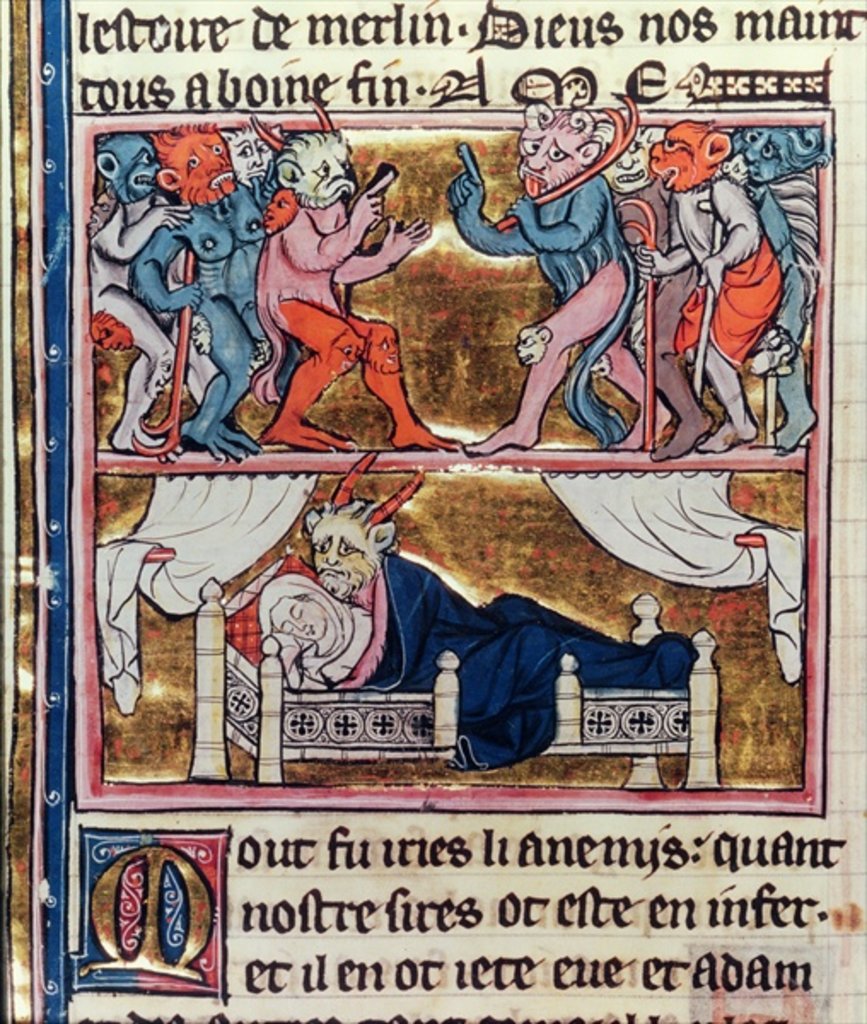 lestoire de merlin. Dieus nos maint
tous a boine fin. A M E
Mout fu iries li anemis: quant
nostre sires ot este en infer.
et il en ot iete eue et adam